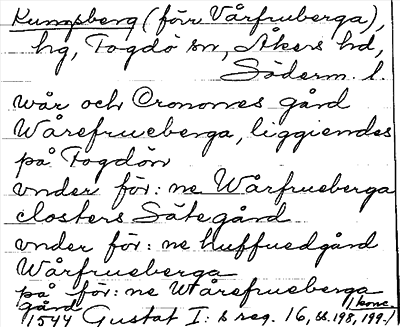 Kungsberg (förr Vårfruberga),
hg, Fogdö sn, Åkers hd,
Söderm. l.
wår och Cronones gård
Wårefrueberga, liggiendes
på Fogdön
vnder för: ne Wårfrueberga
closters Sätegård
vnder för: ne huffuedgård
Wårfrueberga
på för: ne Wårefrueberga
gård
1544 Gustaf I: s reg. 16, ss. 198, 199. / konc.